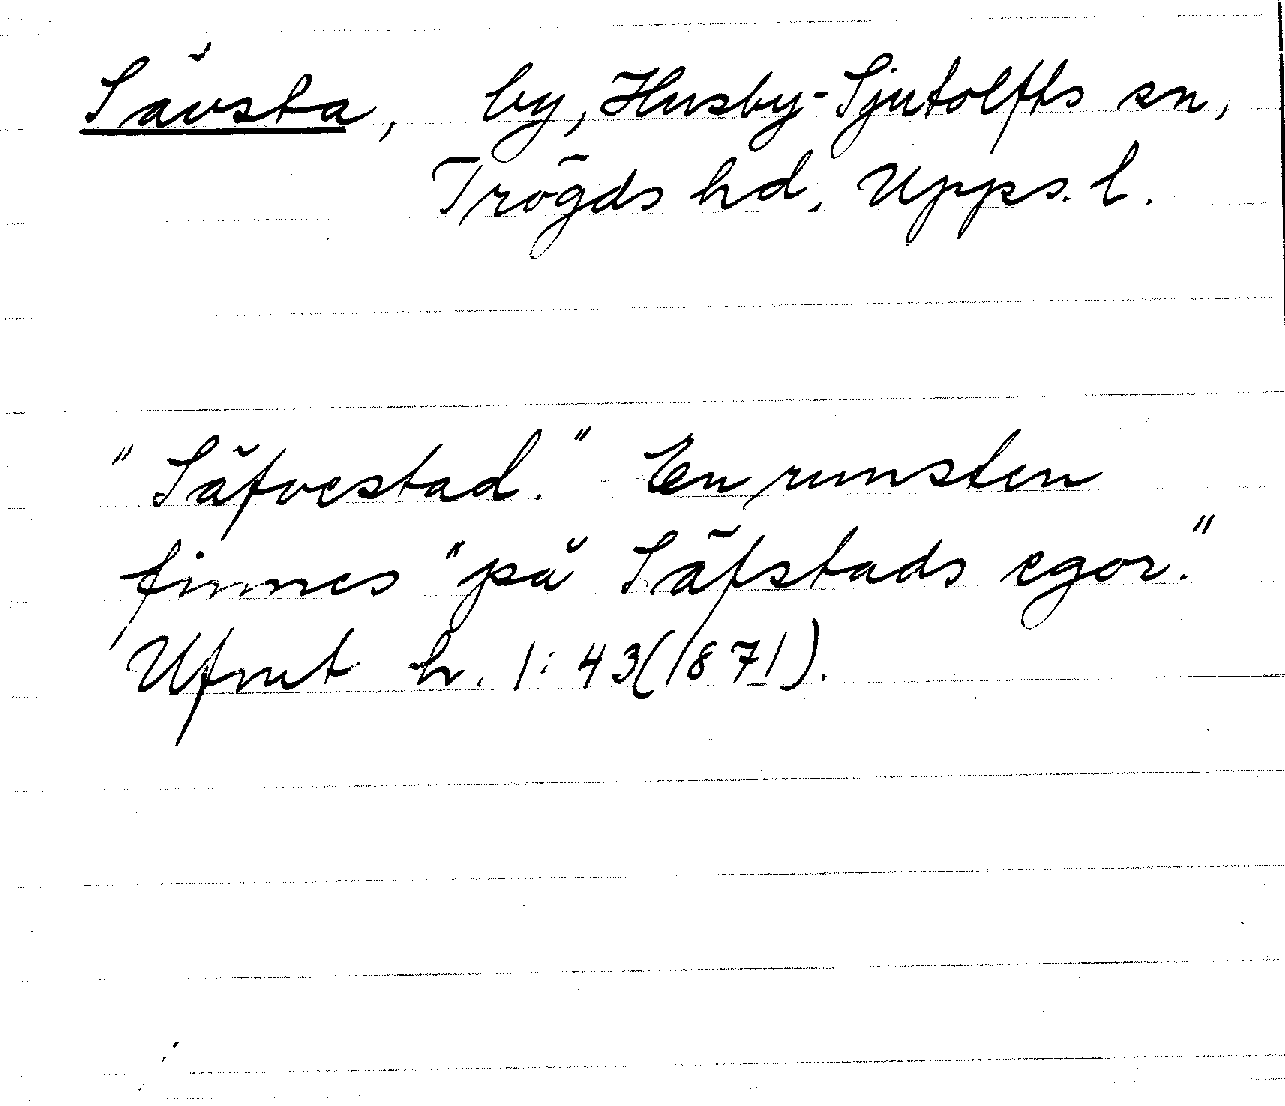 Sävsta, by, Husby-Sjutolfts sn,
Trögds hd, Upps. l.
"Säfvestad." En runsten
finnes "på Säfstads egor."
Ufmt h. 1:43(1871).